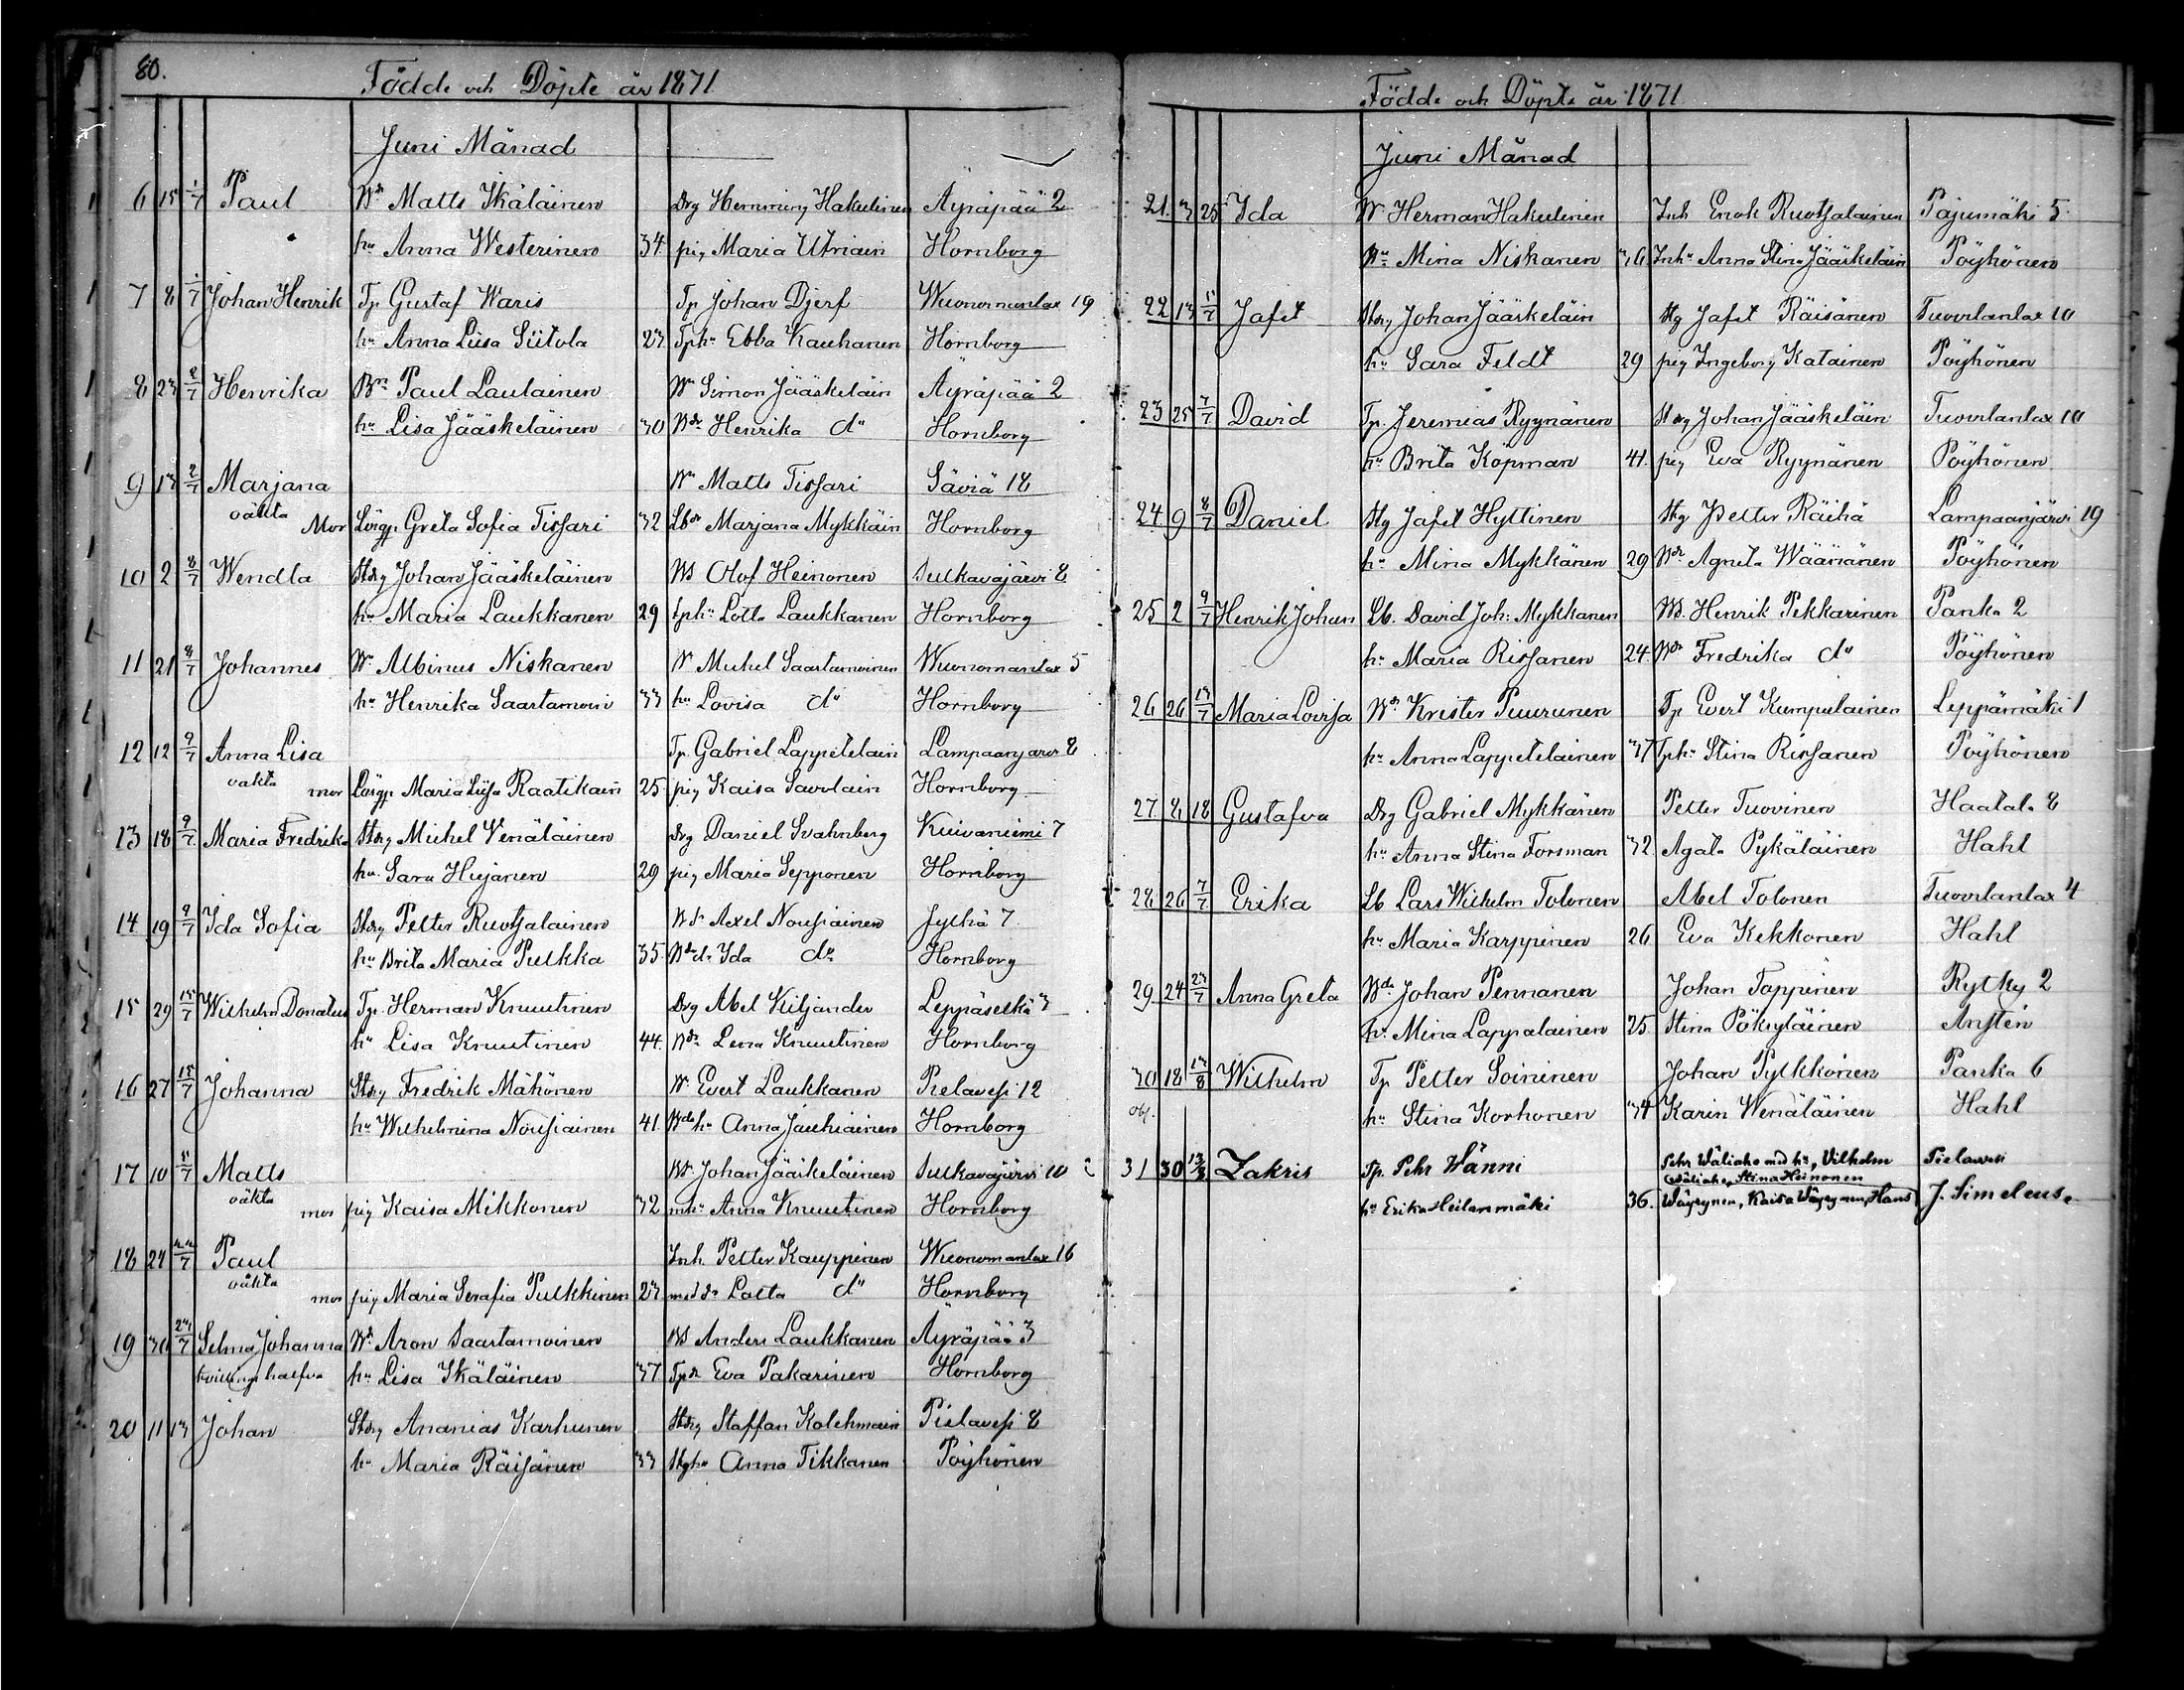 80.
Födde och Döpte år 1871
Juni Månad
6 15 1/7 Paul Bd Matts Ikäläinen Drg Hemming Hakulinen Äyräpää 2
hu Anna Westerinen 34 pig Maria Utriain Hornborg
7 8 1/7 Johan Henrik Tp Gustaf Waris Tp Johan Djerf Wuonomanlax 19
hu Anna Lisa Siitola 23 Tphu Ebba Kauhanen Hornborg
8 23 2/7 Henrika Bn Paul Laulainen Bn Simon Jääskeläin Äyräpää 2
hu Lisa Jääskeläinen 30 Bdr Henrika do Hornborg
9 13 2/7 Marjana Bn Matts Tissari Säviä 18
oäkta Mor Lösgp Greta Sofia Tissari 32 Lbdr Marjana Mykkäin Hornborg
10 2 8/7 Wendla Stdrg Johan Jääskeläinen Bs Olof Heinonen Sulkavajärvi 8
hu Maria Laukkanen 29 tphu Lotta Laukkanen Hornborg
11 21 8/7 Johannes Bn Albinus Niskanen Bn Michel Saastamoinen Wuonomanlax 5
hu Henrika Saastamoin 33 hu Lovisa do Hornborg
12 12 9/7 Anna Lisa Tp Gabriel Lappetelain Lampaanjärvi 8
oäkta mor Lösgp Maria Lijsa Raatikain 25 pig Kaisa Savolain Hornborg
13 18 9/7 Maria Fredrika Stdrg Michel Venäläinen Drg Daniel Svahnberg Kuivaniemi 7
hu Sara Hujanen 29 pig Maria Sepponen Hornborg
14 19 9/7 Ida Sofia Stdrg Petter Ruotsalainen Bs Axel Nousiainen Jylhä 7
hu Brita Maria Pulkka 35 Bdr Ida do Hornborg
15 29 15/7 Wilhelm Donatus Tp Herman Knuutinen Drg Abel Kiljander Leppäselkä 3
hu Lisa Knuutinen 44 Bdr Lena Knuutinen Hornborg
16 27 15/7 Johanna Stdrg Fredrik Mähönen Bn Evert Laukkanen Pielavesi 12
hu Wilhelmina Nousiainen 41 Bdshu Anna Jauhiainen Hornborg
17 10 Matts Bs Johan Jääskeläinen Sulkavajärvi 10
oäkta mor pig Kaisa Mikkonen 32 mhu Anna Knuutinen Hornborg
18 24 Paul Inh. Petter Kauppinen Wuonomanlax 16
oäkta mor pig Maria Serafia Pulkkinen 23 med dr Lotta do Hornborg
19 30 23/7 Selma Johanna Bd Aron Saastamoinen Bs Anders Laukkanen Äyräpää 3
tvillings halfva hu Lisa Ikäläinen 37 Tpdr Eva Pakarinen Hornborg
20 11 13 Johan Stdrg Ananias Karhunen Stdrg Staffan Kolehmain Pielavesi 8
hu Maria Räisänen 33 Stghu Anna Tikkanen Pöyhönen
Födde och Döpte år 1871
Juni Månad
21 3 25 Ida Bn Herman Hakulinen Inh Enok Ruotsalainen Pajumäki 5
hu Mina Niskanen 36 Inhu Anna Stina Jääskeläin Pöyhönen
22 13 Jafet Stdrg Johan Jääskeläin Stg Jafet Räisänen Tuovilanlax 10
hu Sara Feldt 29 pig Ingeborg Katainen Pöyhönen
23 25 7/7 David Tp. Jeremias Ryynänen Stdrg Johan Jääskeläin Tuovilanlax 10
hu Brita Köpman 41 pig Eva Ryynänen Pöyhönen
24 9 8/7 Daniel Stg Jafet Hyttinen Stg Petter Räihä Lampaanjärvi 19
hu Mina Mykkänen 29 Bdr Agneta Wäänänen Pöyhönen
25 2 9/7 Henrik Johan Lb. David Joh: Mykkänen Bs. Henrik Pekkarinen Panka 2
hu Maria Rissanen 24 Bdr Fredrika do Pöyhönen
26 26 13/7 Maria Lovisa Bn Krister Puurunen Tp Evert Kumpulainen Leppämäki 1
hu Anna Lappeteläinen 37 Tphu Stina Rissanen Pöyhönen
27 8 18 Gustafva Drg Gabriel Mykkänen Petter Tuovinen Haatala 8
hu Anna Stina Forsman 32 Agata Pykäläinen Hahl
28 26 7/7 Erika Lb Lars Wilhelm Tolonen Abel Tolonen Tuovilanlax 4
hu Maria Karppinen 26 Eva Kekkonen Hahl
29 24 23/7 Anna Greta Bds Johan Pennanen Johan Tappinen Rytky 2
hu Mina Lappalainen 25 Stina Pöksyläinen Anstén
30 18 13/8 Wilhelm Tp Petter Soininen Johan Pylkkönen Panka 6
obs. hu Stina Korhonen 34 Karin Wenäläinen Hahl
31 30 Zakris Tp. Pehr Hänni Pehr Wäliaho med hu, Vilhelm Pielavesi
Wäliaho, Stina Heinonen
hu Erika Heilanmäki 36. Wäyrynen, Kaisa Wäyrynen, Hans J. Simelius